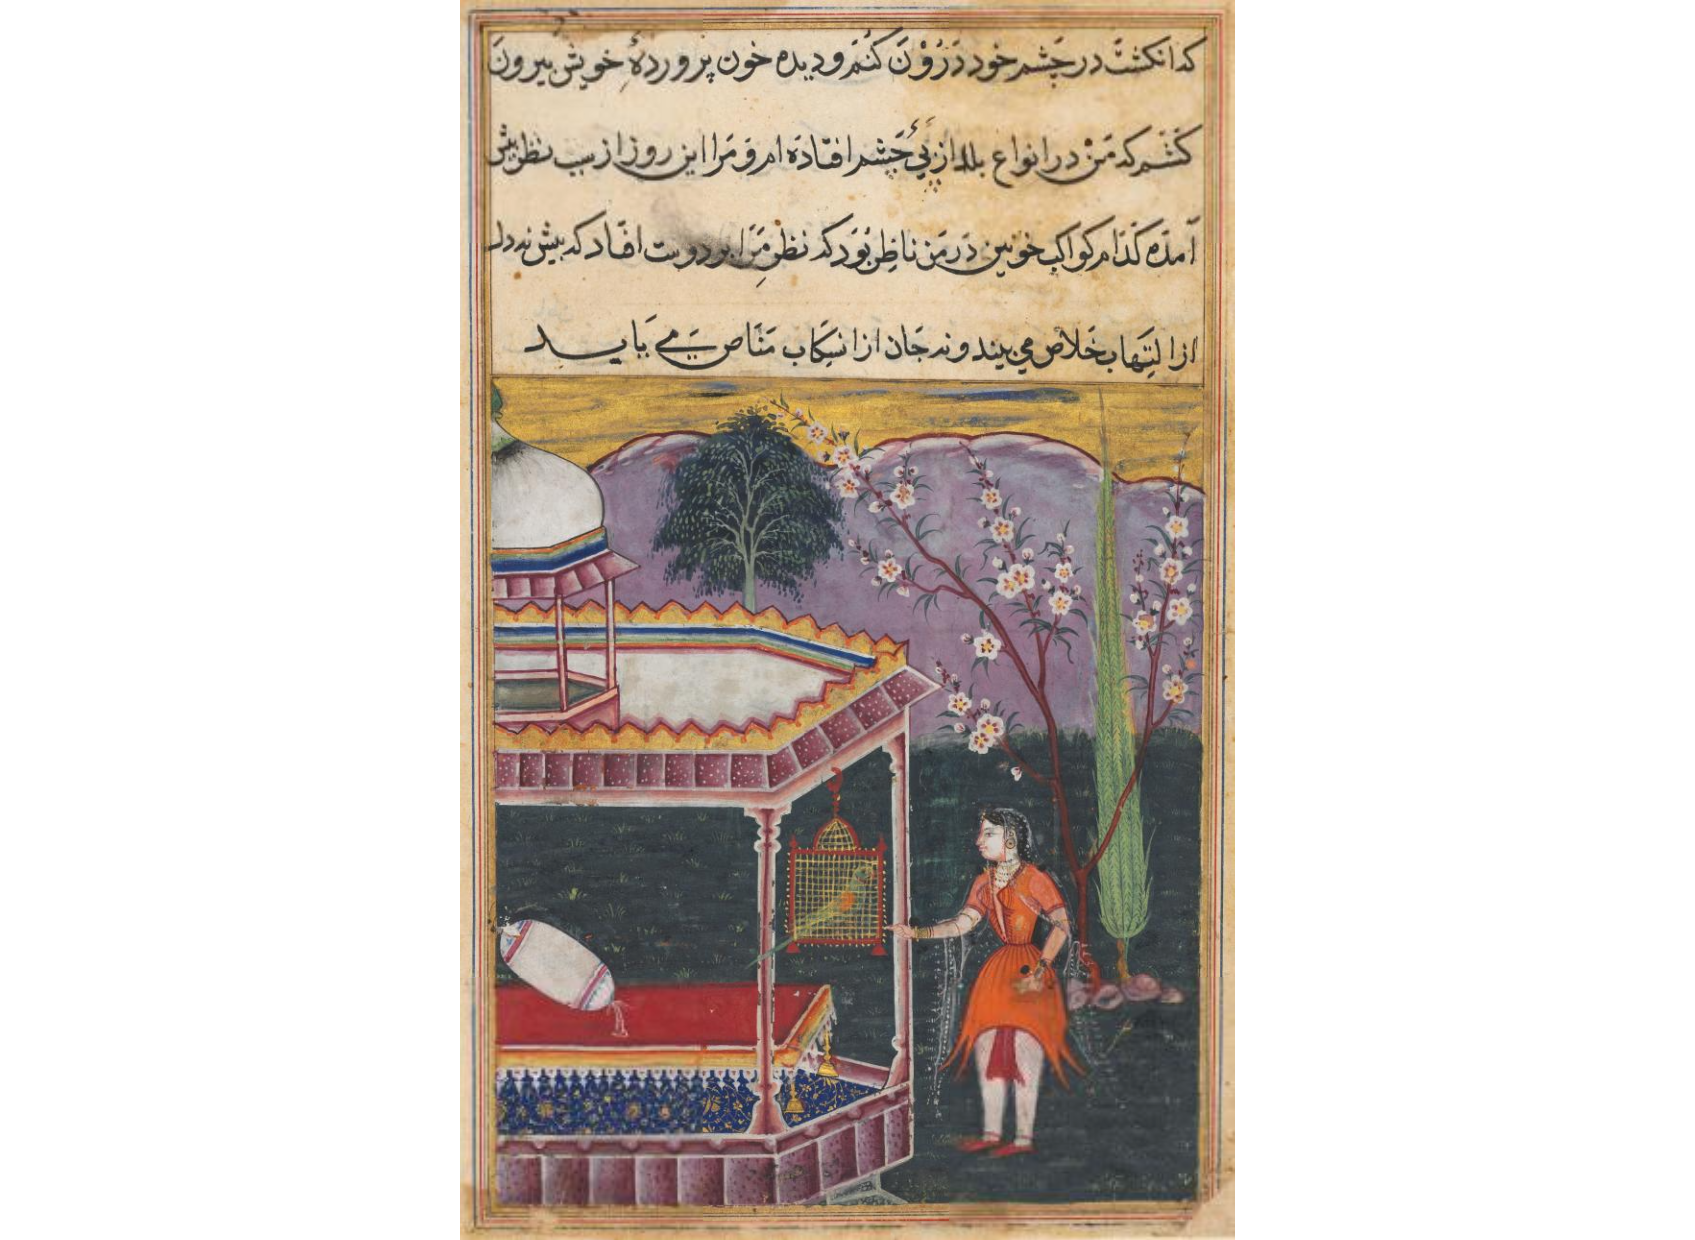 که انکشت در چَشم خود دَرُوْنَ کُنَم و دیده خون پروردهٔ خویش بیرون
کَشَم که مَنْ در انواع بلا از پَیِٔ چَشم افتادَه ام و مَرا این روز از سبب نظر پیش
آمدَه کَدام کواکب خونین دَر مَن ناظِر بُوَد که نظرِ مَرا بر دوست افتاد که بیش نه دل
از اِلتِهاب خَلاص می بیند و نه جَان از اِنسِکاب مَنَاص مے یَابد